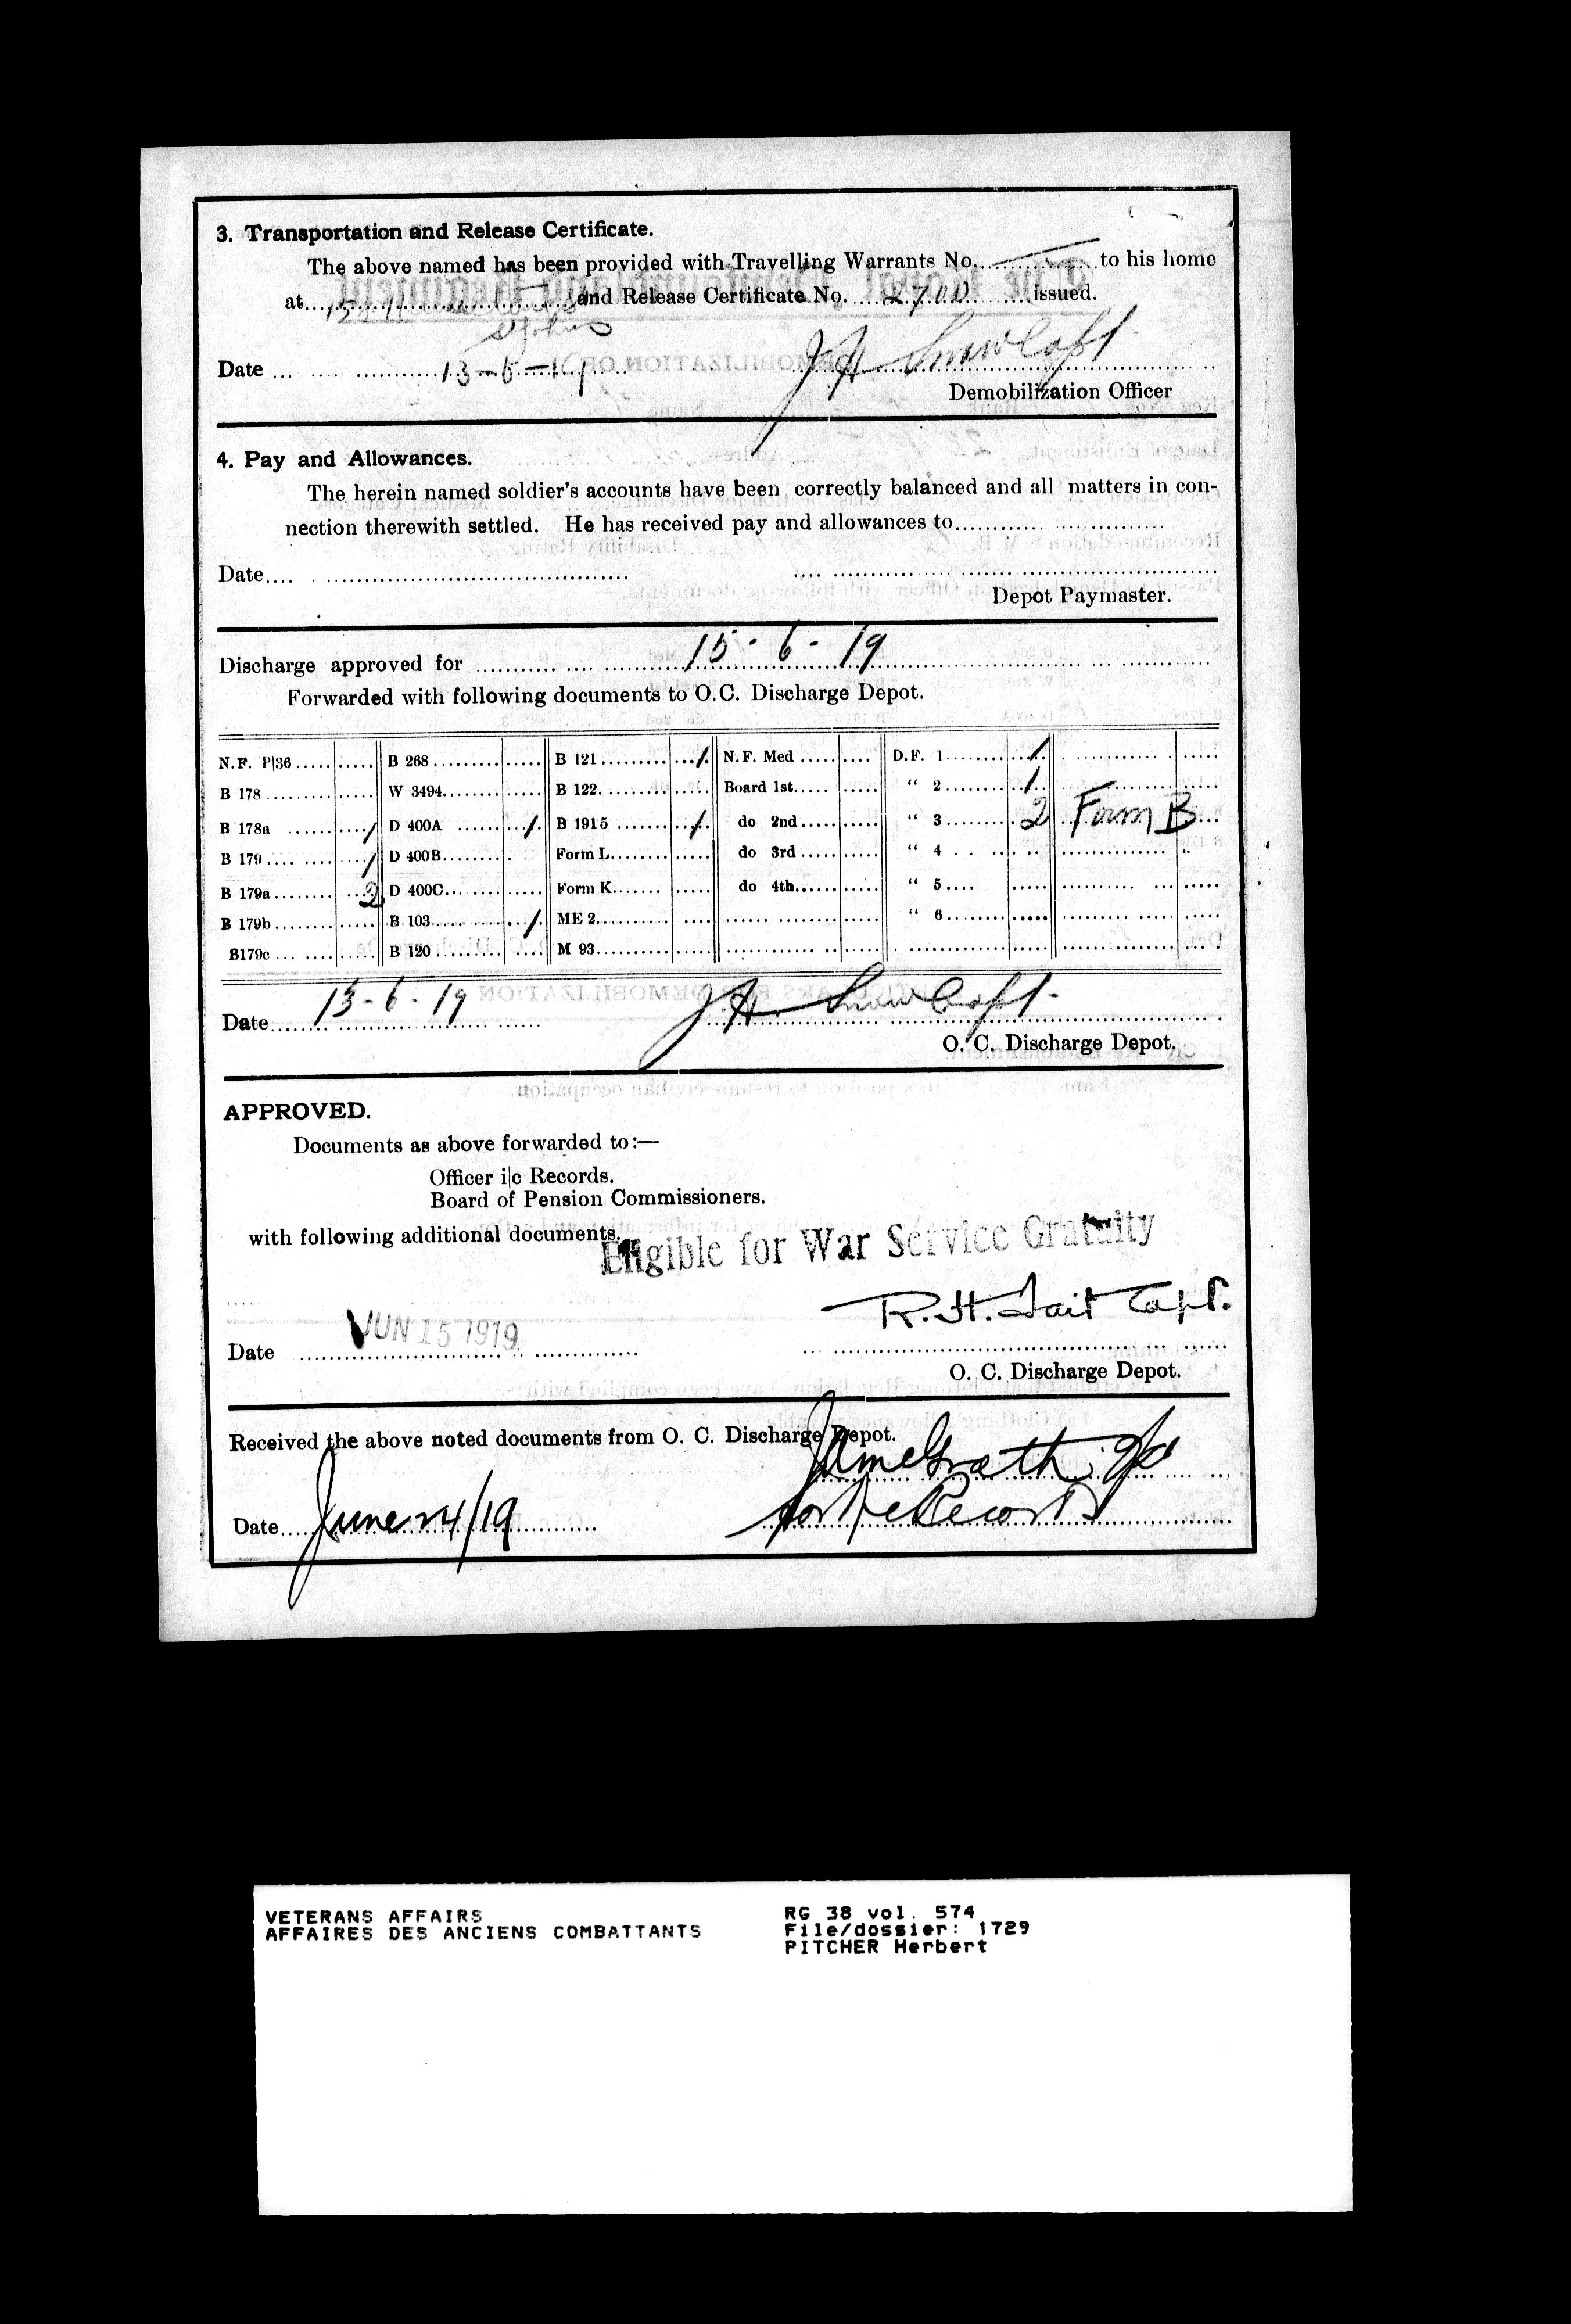 3. Transportation and Release Certificate.
The above named has been provided with Travelling Warrants No. to his home
at and Release Certificate No. 2700 issued.
St Johns
Date 13-6-19
Demobilization Officer
4. Pay and Allowances.
The herein named soldier's accounts have been correctly balanced and all matters in con-
nection therewith settled. He has received pay and allowances to
Date
Depot Paymaster.
Discharge approved for 15-6-19
Forwarded with following documents to O.C. Discharge Depot.
N.F. P|36 B 268 B 121 1 N.F. Med D.F. 1 1
B 178 W 3494 B 122 Board 1st " 2 1
B 178a 1 D 400A 1 B 1915 1 do 2nd " 3 2 Form B
B 179 1 D 400B Form L do 3rd " 4
B 179a 2 D 400C Form K do 4th " 5
B 179b B 103 1 ME 2 " 6
B179c B 120 M 93
Date 13-6-19 J A Snow Capt
O. C. Discharge Depot.
APPROVED.
Documents as above forwarded to:—
Officer i|c Records.
Board of Pension Commissioners.
with following additional documents.
Eligible for War Service Gratuity
R. H. Tait Capt.
Date JUN 15 1919
O. C. Discharge Depot.
Received the above noted documents from O. C. Discharge Depot.
Date June 24/19 for Records
VETERANS AFFAIRS RG 38 vol. 574
AFFAIRES DES ANCIENS COMBATTANTS File/dossier: 1729
PITCHER Herbert